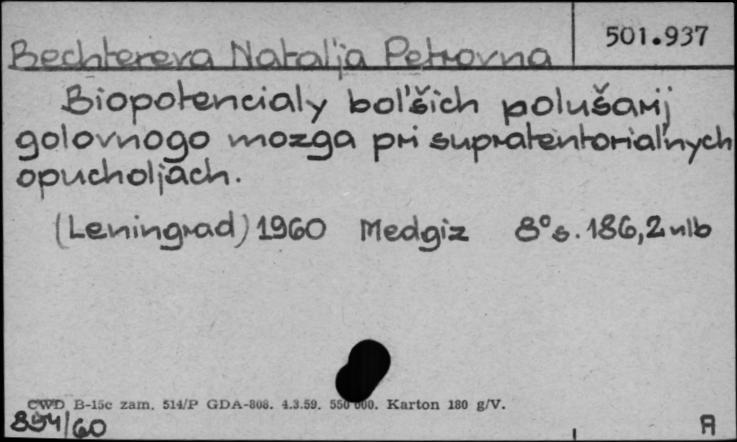 Bechtereva Natalja Petrovna
501.937
Biopotencialy bol'šich polušarij
golovnogo mozga pri supratentorial'nych
opucholjach.
(Leningrad) 1960 Medgiz 8° s. 186, 2 nlb
CWD B-15c zam. 514/P GDA-808. 4.3.59. 550 000. Karton 180 g/V.
894/60
A